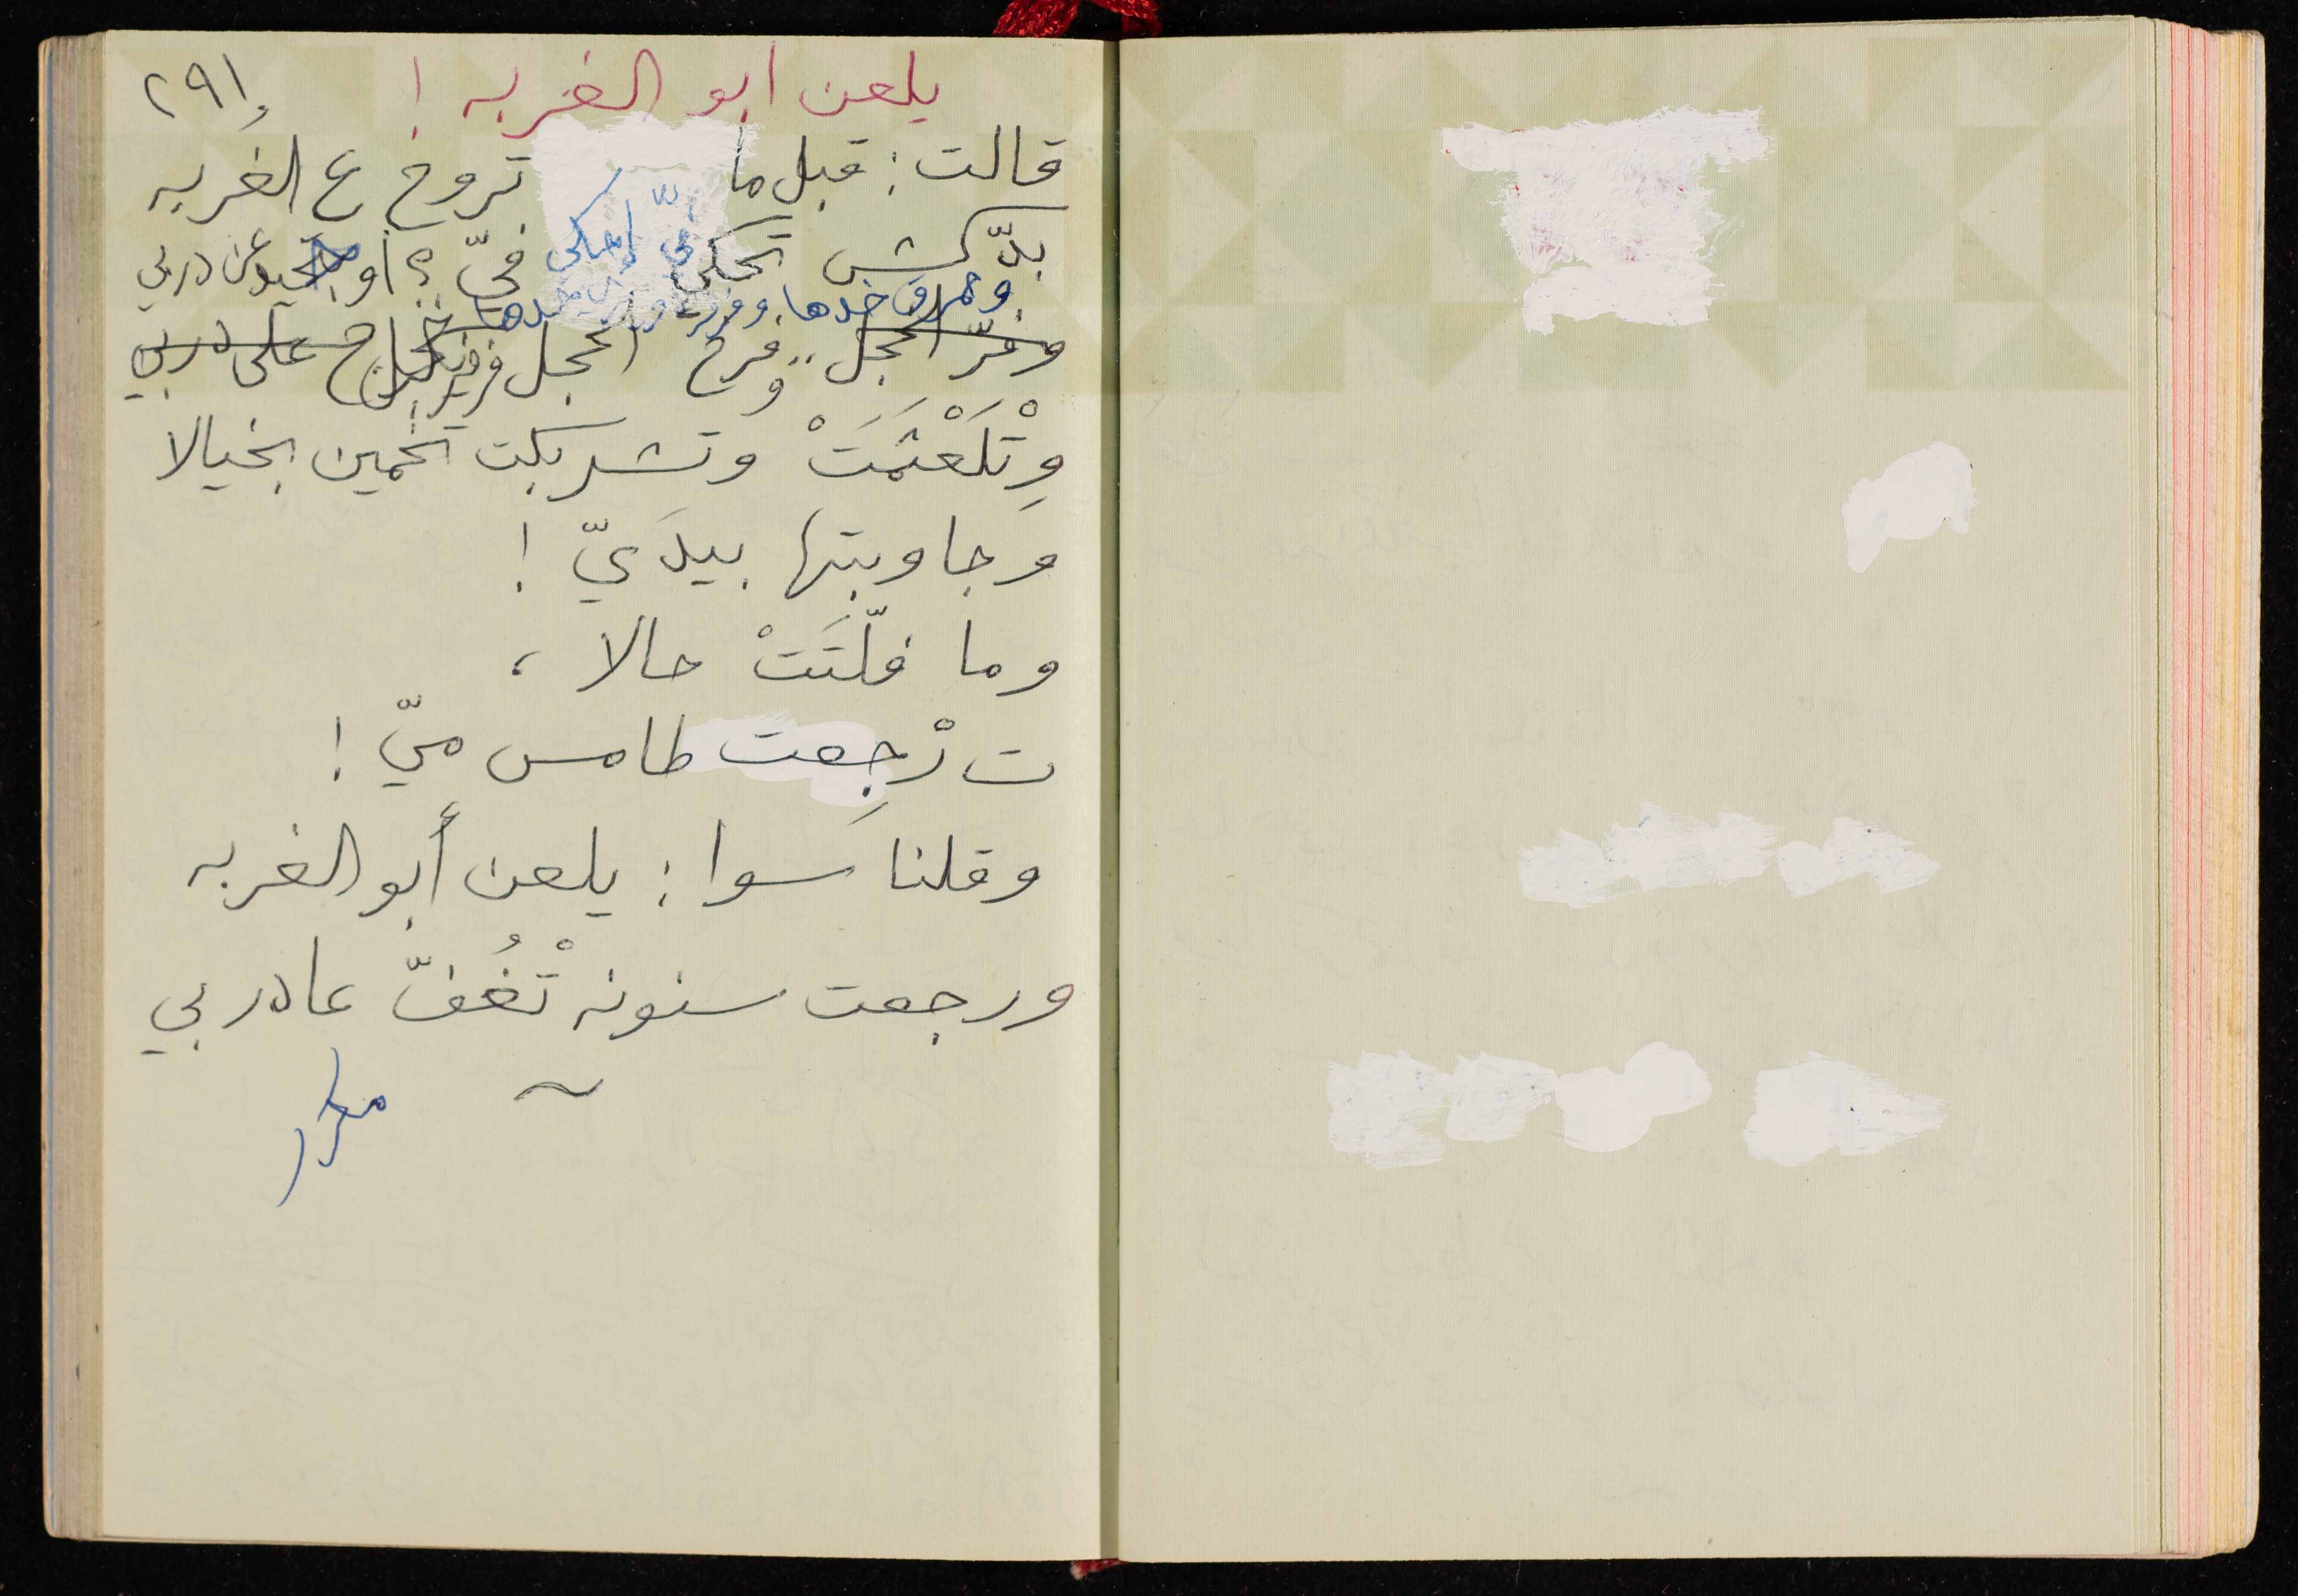 يلعن ابو الغربه !
٢٩١
قالت : قبل ما تروح ع الغربه
بدّكش تحكي فيّ ؟ او تحيد عن دربي
وحمرة خدها
وفرّ الحجل .. وفرخ الحجل على دربي
وِتْلَعْثَمَتْ وتشربكت تخمين بخيالا
وجاوبتها بيدَيّ !
وما فلّتَتْ حالا ،
ت رْجِعت طامس ميّ !
وقلنا سَوا : يلعن أبو الغربه
ورجعت سنونه تْغُفّ عا دربي
~
مكرر